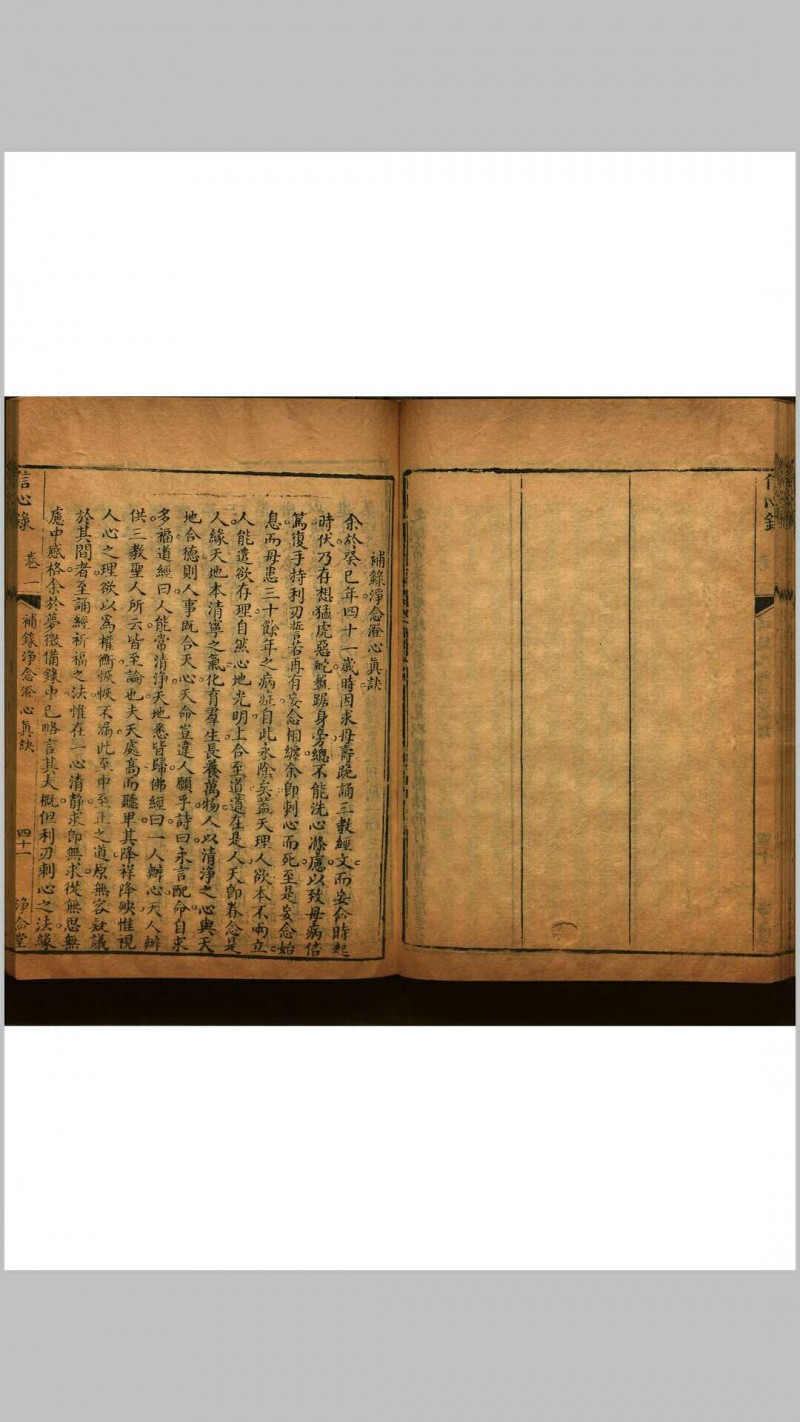 補錄淨念澄心眞訣
余於癸巳年四十一歲時因求母壽跪誦三教經文而妄念時起
時伏乃存想猛虎惡蛇盤踞身旁總不能洗心滌慮以致母病倍
篤復手持利刃誓若再有妄念相纏余卽刺心而死至是妄念始
息而母患三十餘年之病症自此永除矣葢天理人欲本不両立
人能遣欲存理自然心地光明上合至道道在是人天卽眷念是
人緣天地本清寧之氣化育羣生長養萬物人以清淨之心與天
地合德則人事旣合天心天命豈違人願乎詩曰永言配命自求
多福道經曰人能常清淨天地悉皆歸佛經曰一人辦心天人辦
供三教聖人所云皆至論也夫天處高而聽卑其降祥降殃惟視
人心之理欲以爲權衡恢恢不漏此至中至正之道原無容疑議
於其間者至誦經祈福之法惟在一心清静求卽無求從無思無
慮中感格余於夢徵備錄中已略言其大概但利刃刺心之法緣
信心錄 卷一 補錄淨念澄心眞訣 四十一 淨念堂
信心錄